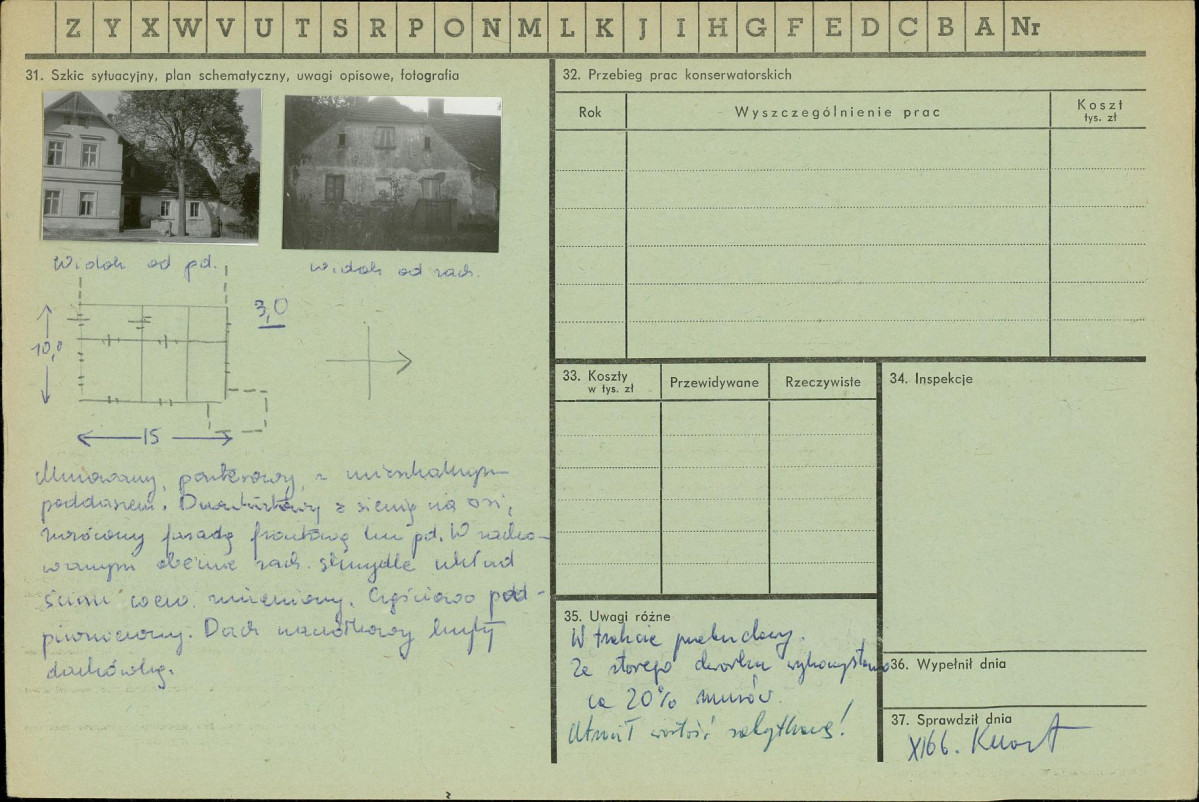 Z Y X W V U T S R P O N M L K J I H G F E D C B A Nr
31. Szkic sytuacyjny, plan schematyczny, uwagi opisowe, fotografia
Widok od pd.
widok od zach.
3,0
10,0
15
Murowany, parterowy, z mieszkalnym
poddaszem. Dwutraktowy z sienią na osi,
zwrócony fasadą frontową ku pd. W zacho-
wanym obecnie zach. skrzydle układ
ścian wewn. zmieniony. Częściowo pod-
piwniczony. Dach naczółkowy kryty
dachówką.
32. Przebieg prac konserwatorskich
Rok
Wyszczególnienie prac
Koszt
tys. zł
33. Koszty
w tys. zł
Przewidywane
Rzeczywiste
34. Inspekcje
35. Uwagi różne
W trakcie przebudowy.
Ze starego dworku wykorzystano
ca 20% murów.
Utracił wartość zabytkową!
36. Wypełnił dnia
37. Sprawdził dnia
XI 66.